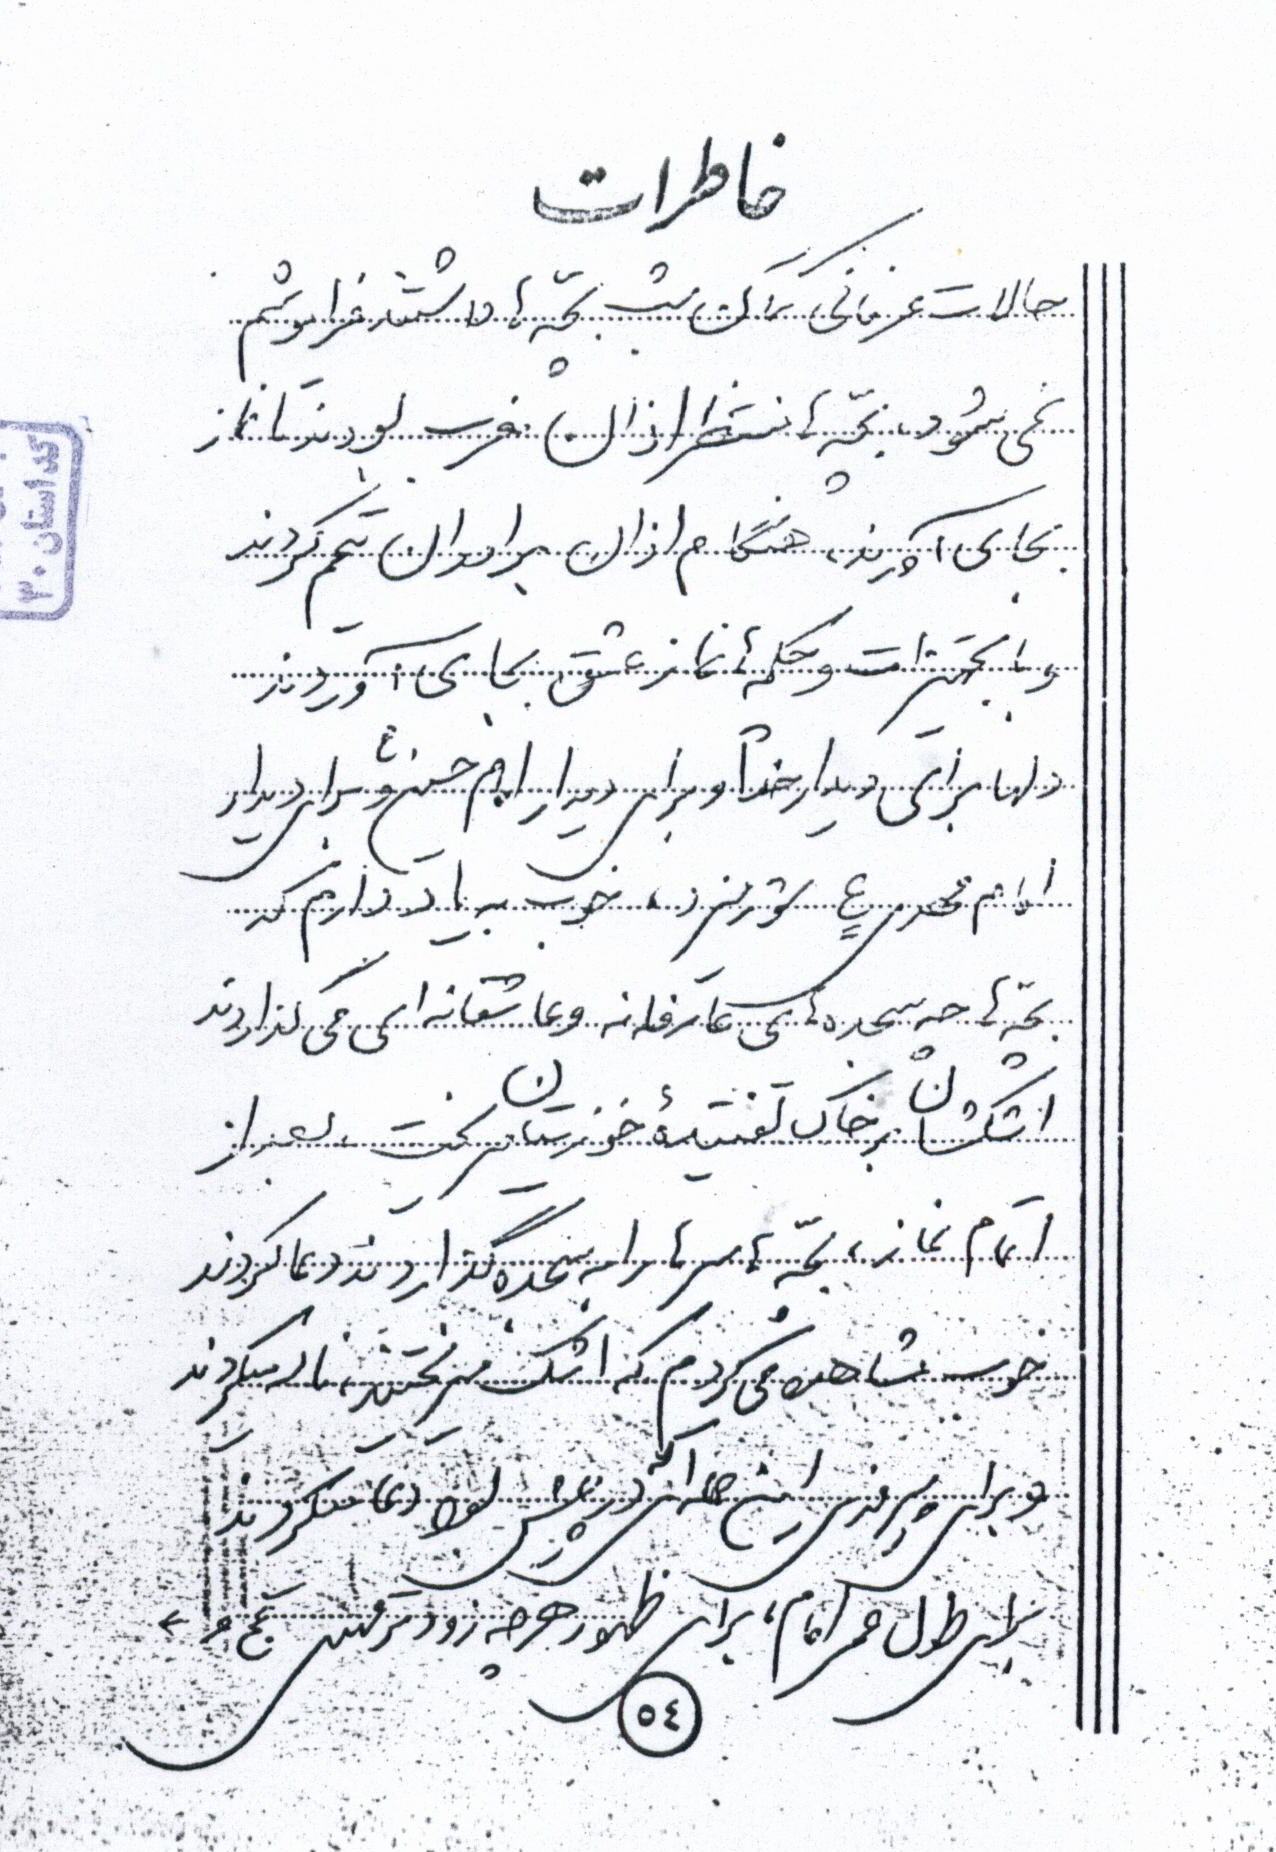 خاطرات
حالات عرفانی که آن شب بچّه‌ها داشتند فراموشم
نمی‌شود، بچّه‌ها منتظر اذان مغرب بودند تا نماز
بجای آورند، هنگام اذان برادران تیمم کردند
و با تجهیزات و چکمه‌ها نماز عشق بجای آوردند
دلها برای دیدار خدا و برای دیدار امام حسین ع و برای دیدار
امام مهدی ع شور میزد، خوب به یاد دارم که
بچّه‌ها چه سجده‌های عارفانه و عاشقانه‌ای می‌گذاردند
اشکشان بر خاک تفتیدهٔ خوزستان میریخت، بعد از
اتمام نماز، بچّه‌ها سرها را به سجده گذاردند و دعا کردند
خوب مشاهده می‌کردم که اشک میریختند، ناله میکردند
و برای پیروزی این حمله‌ای که در پیش بود دعا میکردند
برای طول عمر امام، برای ظهور هرچه زودتر مهدی عج و
٥٤
کد استان ۳۰